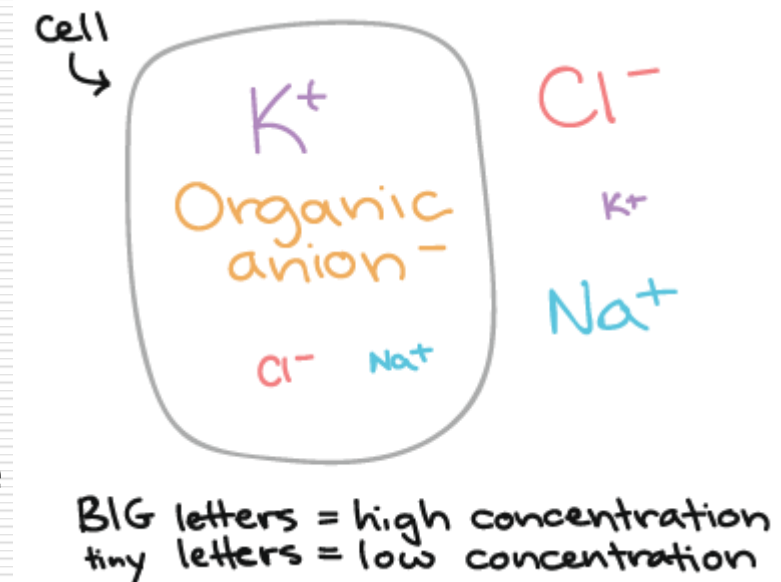 cell
K+
Cl-
Organic
K+
anion-
Na+
Cl- Na+
BIG letters = high concentration
tiny letters = low concentration